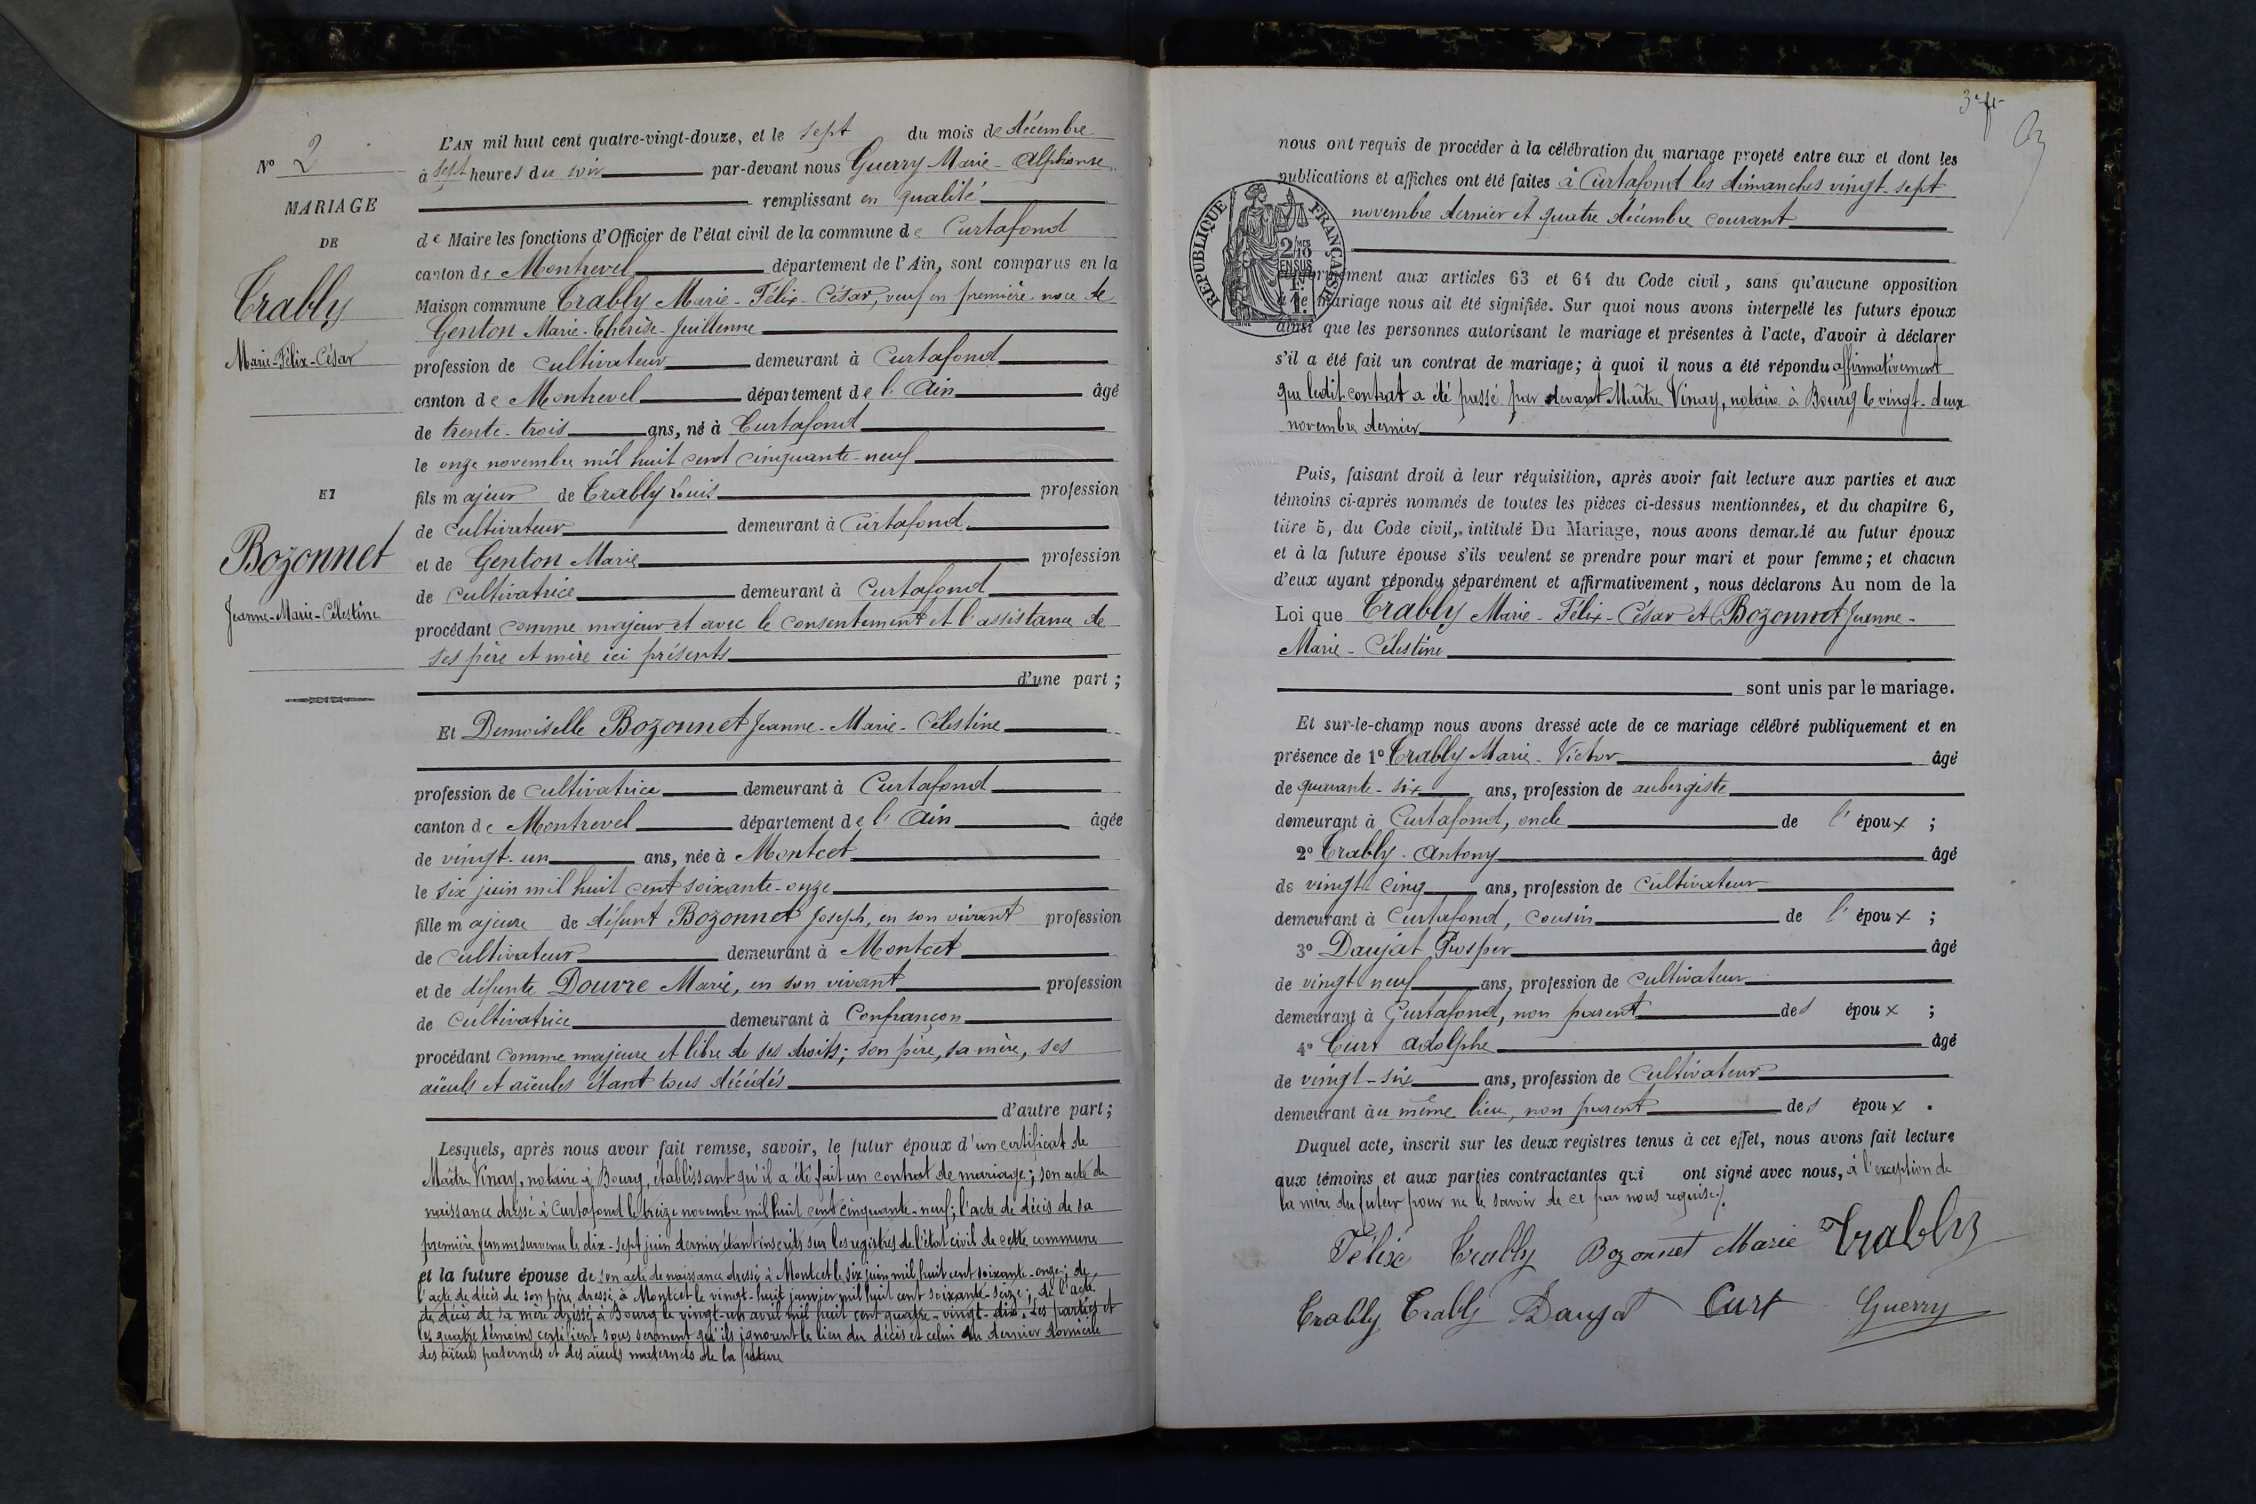 Nº 2
MARIAGE
DE
Trably
Marie-Félix-César
ET
Bozonnet
Jeanne-Marie-Célestine
L'AN mil huit cent quatre-vingt-douze, et le sept du mois de décembre
à sept heures du soir par-devant nous Guerry Marie-Alphonse
remplissant en qualité
de Maire les fonctions d'Officier de l'état civil de la commune de Curtafond
canton de Montrevel département de l'Ain, sont comparus en la
Maison commune Trably Marie-Félix-César, veuf en première noce de
Genton Marie-Thérèse-Juillenne
profession de cultivateur demeurant à Curtafond
canton de Montrevel département de l'Ain âgé
de trente-trois ans, né à Curtafond
le onze novembre mil huit cent cinquante-neuf
fils majeur de Trably Louis profession
de cultivateur demeurant à Curtafond
et de Genton Marie profession
de cultivatrice demeurant à Curtafond
procédant comme majeur et avec le consentement et l'assistance de
ses père et mère ici présents
d'une part ;
Et Demoiselle Bozonnet Jeanne-Marie-Célestine
profession de cultivatrice demeurant à Curtafond
canton de Montrevel département de l'Ain âgée
de vingt-un ans, née à Montcet
le six juin mil huit cent soixante-onze
fille majeure de défunt Bozonnet Joseph, en son vivant profession
de cultivateur demeurant à Montcet
et de défunte Douvre Marie, en son vivant profession
de cultivatrice demeurant à Confrançon
procédant comme majeure et libre de ses droits; son père, sa mère, ses
aïeuls et aïeules étant tous décédés
d'autre part ;
Lesquels, après nous avoir fait remise, savoir, le futur époux d'un certificat de
Maître Vinay, notaire à Bourg, établissant qu'il a été fait un contrat de mariage; son acte de
naissance dressé à Curtafond le treize novembre mil huit cent cinquante-neuf; l'acte de décès de sa
première femme survenu le dix-sept juin dernier étant inscrits sur les registres de l'état civil de cette commune
et la future épouse de son acte de naissance dressé à Montcet le six juin mil huit cent soixante-onze; de
l'acte de décès de son père, dressé à Montcet le vingt-huit janvier mil huit cent soixante-seize; de l'acte
de décès de sa mère dressé à Bourg le vingt-un avril mil huit cent quatre-vingt-dix. Les parties et
les quatre témoins certifient sous serment qu'ils ignorent le lieu du décès et celui du dernier domicile
des aïeuls paternels et des aïeuls maternels de la future
nous ont requis de procéder à la célébration du mariage projeté entre eux et dont les
publications et affiches ont été faites à Curtafond les dimanches vingt-sept
novembre dernier et quatre décembre courant
RÉPUBLIQUE FRANÇAISE
2/10 EN SUS
conformément aux articles 63 et 64 du Code civil, sans qu'aucune opposition
à ce mariage nous ait été signifiée. Sur quoi nous avons interpellé les futurs époux
ainsi que les personnes autorisant le mariage et présentes à l'acte, d'avoir à déclarer
s'il a été fait un contrat de mariage; à quoi il nous a été répondu affirmativement
que ledit contrat a été passé par devant Maître Vinay, notaire à Bourg le vingt-deux
novembre dernier
Puis, faisant droit à leur réquisition, après avoir fait lecture aux parties et aux
témoins ci-après nommés de toutes les pièces ci-dessus mentionnées, et du chapitre 6,
titre 5, du Code civil, intitulé Du Mariage, nous avons demandé au futur époux
et à la future épouse s'ils veulent se prendre pour mari et pour femme; et chacun
d'eux ayant répondu séparément et affirmativement, nous déclarons Au nom de la
Loi que Trably Marie-Félix-César et Bozonnet Jeanne-
Marie-Célestine
sont unis par le mariage.
Et sur-le-champ nous avons dressé acte de ce mariage célébré publiquement et en
présence de 1º Trably Marie-Victor âgé
de quarante-six ans, profession de aubergiste
demeurant à Curtafond, oncle de l'époux ;
2º Trably Antony âgé
de vingt cinq ans, profession de cultivateur
demeurant à Curtafond, cousin de l'époux ;
3º Daujat Prosper âgé
de vingt neuf ans, profession de cultivateur
demeurant à Curtafond, non parent des époux ;
4º Curt Adolphe âgé
de vingt-six ans, profession de cultivateur
demeurant au même lieu, non parent des époux .
Duquel acte, inscrit sur les deux registres tenus à cet effet, nous avons fait lecture
aux témoins et aux parties contractantes qui ont signé avec nous, à l'exception de
la mère du futur pour ne le savoir de ce par nous requise.
Félix Trably Bozonnet Marie Trably
Trably Trably Daujat Curt Guerry